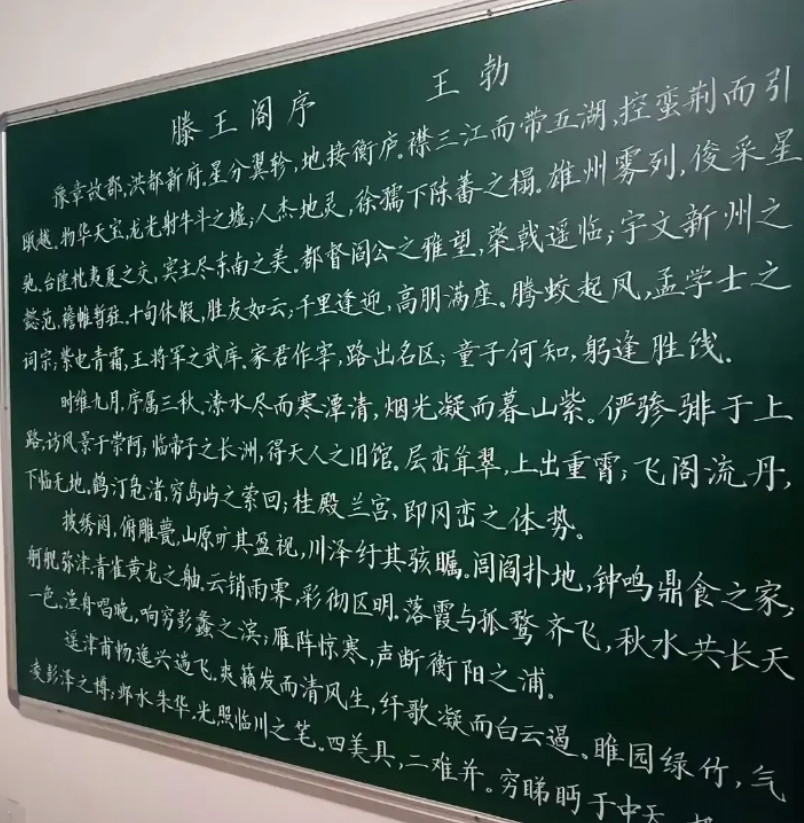 滕王阁序 王勃
豫章故郡,洪都新府.星分翼轸,地接衡庐.襟三江而带五湖,控蛮荆而引
瓯越.物华天宝,龙光射牛斗之墟;人杰地灵,徐孺下陈蕃之榻.雄州雾列,俊采星
驰.台隍枕夷夏之交,宾主尽东南之美.都督阎公之雅望,棨戟遥临;宇文新州之
懿范,襜帷暂驻.十旬休假,胜友如云;千里逢迎,高朋满座.腾蛟起风,孟学士之
词宗;紫电青霜,王将军之武库.家君作宰,路出名区;童子何知,躬逢胜饯.
时维九月,序属三秋.潦水尽而寒潭清,烟光凝而暮山紫.俨骖騑于上
路,访风景于崇阿;临帝子之长洲,得天人之旧馆.层峦耸翠,上出重霄;飞阁流丹,
下临无地.鹤汀凫渚,穷岛屿之萦回;桂殿兰宫,即冈峦之体势。
披绣闼,俯雕甍,山原旷其盈视,川泽纡其骇瞩.闾阎扑地,钟鸣鼎食之家;
舸舰弥津,青雀黄龙之舳.云销雨霁,彩彻区明.落霞与孤鹜齐飞,秋水共长天
一色.渔舟唱晚,响穷彭蠡之滨;雁阵惊寒,声断衡阳之浦。
遥津甫畅,逸兴遄飞.爽籁发而清风生,纤歌凝而白云遏。睢园绿竹,气
凌彭泽之樽;邺水朱华,光照临川之笔.四美具,二难并。穷睇眄于中天